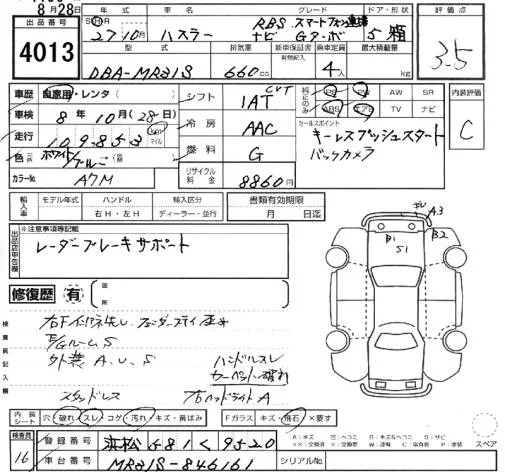 8月28日
出品番号
4013
年式 車名 グレード ドア・形状 評価点
27 10月 ハスラー
RBS スマートフォン連携
ナビ Gターボ 5 箱
3.5
型式 排気量 新車保証書 乗車定員 最大積載量
有無記入
DBA-MR31S 660cc 4人 kg
車歴 自家用・レンタ( ) シフト CVT
1AT
純正のみ PS PW AW SR
ABS エアB TV ナビ
内装評価
C
車検 8年10月(28日)
冷房 AAC
セールスポイント
キーレスプッシュスタート
バックカメラ
走行 109,853 km マイル
燃料 G
色 ホワイト/ブルー
リサイクル料金 8860円
カラーNo. A7M
輸入車 モデル年式 ハンドル 輸入区分 書類有効期限
右H・左H ディーラー・並行 月 日迄
※注意事項等記載
出品店申告欄
レーダーブレーキサポート
修復歴 有
箇所
検査員記入欄
E/GルームS
外装A.U.S
ハンドルスレ
カーペット破れ
スタッドレス 右ヘッドライトA
A3
B1 B2
S1
内装シート 穴・破れ・スレ・コゲ・汚れ・キズ・黄ばみ Fガラス キズ・飛石・×要す
検査員
16
登録番号 浜松 581 く 9520
車台番号 MR31S-846161
シリアルNo.
スペア